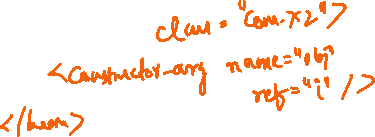 class = "com.x2">
<constructor-arg name="obj"
ref="i" />
</bean>